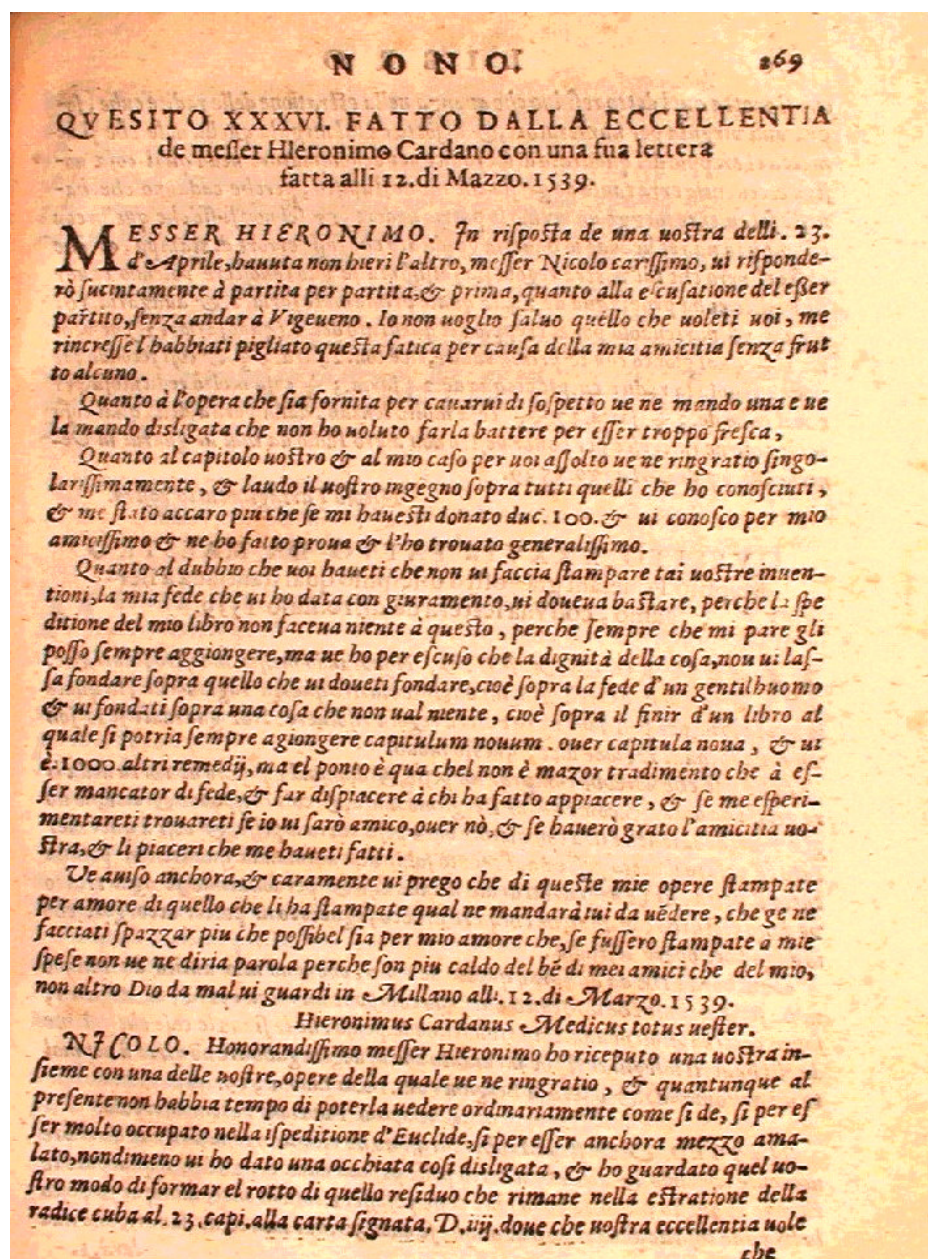 NONO. 269
QVESITO XXXVI. FATTO DALLA ECCELLENTIA
de meſſer HIeronimo Cardano con una ſua lettera
fatta alli 12. di Mazzo. 1539.
MESSER HIERONIMO. In riſpoſta de una uoſtra delli. 23.
d'Aprile, hauuta non hieri l'altro, meſſer Nicolo cariſſimo, ui riſponde-
rò ſucintamente à partita per partita, & prima, quanto alla eſcuſatione del eſſer
partito, ſenza andar à Vigeueno. Io non uoglio ſaluo quello che uoleti uoi, me
rincreſſe l'habbiati pigliato queſta fatica per cauſa della mia amicitia ſenza frut
to alcuno.
Quanto à l'opera che ſia fornita per cauarui di ſoſpetto ue ne mando una e ue
la mando disligata che non ho uoluto farla battere per eſſer troppo freſca,
Quanto al capitolo uoſtro & al mio caſo per uoi aſſolto ue ne ringratio ſingo-
lariſſimamente, & laudo il uoſtro ingegno ſopra tutti quelli che ho conoſciuti,
& me ſtato accaro piu che ſe mi haueſti donato duc. 100. & ui conoſco per mio
amiciſſimo & ne ho fatto proua & l'ho trouato generaliſſimo.
Quanto al dubbio che uoi haueti che non ui faccia ſtampare tai uoſtre inuen-
tioni, la mia fede che ui ho data con giuramento, ui doueua baſtare, perche la ſpe
ditione del mio libro non faceua niente à queſto, perche ſempre che mi pare gli
poſſo ſempre aggiongere, ma ue ho per eſcuſo che la dignità della coſa, nou ui laſ-
ſa fondare ſopra quello che ui doueti fondare, cioè ſopra la fede d'un gentilhuomo
& ui fondati ſopra una coſa che non ual niente, cioè ſopra il finir d'un libro al
quale ſi potria ſempre agiongere capitulum nouum. ouer capitula noua, & ui
è. 1000. altri remedij, ma el ponto è qua chel non è mazor tradimento che à eſ-
ſer mancator di fede, & far diſpiacere à chi ha fatto appiacere, & ſe me eſperi-
mentareti trouareti ſe io ui ſarò amico, ouer nò, & ſe hauerò grato l'amicitia uo-
ſtra, & li piaceri che me haueti fatti.
Ve auiſo anchora, & caramente ui prego che di queſte mie opere ſtampate
per amore di quello che li ha ſtampate qual ne mandarà iui da uédere, che ge ne
facciati ſpazzar piu che poſſibel ſia per mio amore che, ſe fuſſero ſtampate a mie
ſpeſe non ue ne diria parola perche ſon piu caldo del bé di mei amici che del mio,
non altro Dio da mal ui guardi in Millano alli. 12. di Marzo. 1539.
Hieronimus Cardanus Medicus totus ueſter.
NICOLO. Honorandiſſimo meſſer Hieronimo ho riceputo una uoſtra in-
ſieme con una delle uoſtre, opere della quale ue ne ringratio, & quantunque al
preſente non habbia tempo di poterla uedere ordinariamente come ſi de, ſi per eſ
ſer molto occupato nella iſpeditione d'Euclide, ſi per eſſer anchora mezzo ama-
lato, nondimeno ui ho dato una occhiata coſi disligata, & ho guardato quel uo-
ſtro modo di formar el rotto di quello reſiduo che rimane nella eſtratione della
radice cuba al. 23. capi. alla carta ſignata. D. iiij. doue che uoſtra eccellentia uole
che